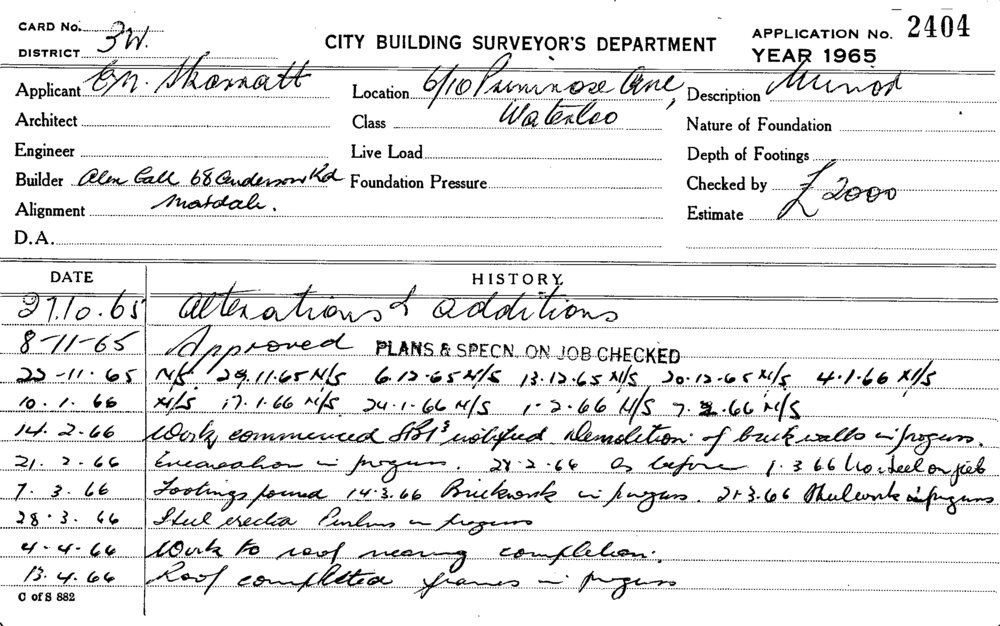 CARD No.
DISTRICT 3W.
CITY BUILDING SURVEYOR'S DEPARTMENT
APPLICATION No. 2404
YEAR 1965
Applicant
Location 6/10 Primrose Ave,
Description Minor
Architect
Class Waterloo
Nature of Foundation
Engineer
Live Load
Depth of Footings
Builder Alex Call 68 Anderson Rd
Foundation Pressure
Checked by
Alignment
Estimate £2000
D.A.
DATE HISTORY
27.10.65 Alterations & additions
8-11-65 Approved PLANS & SPECN. ON JOB CHECKED
22-11-65 N/S. 29.11.65 N/S 6.12.65 N/S 13.12.65 N/S 20.12.65 N/S 4.1.66 N/S
10.1.66 N/S 17.1.66 N/S 24.1.66 N/S 1-2.66 N/S 7.2.66 N/S
14.2.66 Work commenced notified Demolition of brick walls in progress.
21.2.66 Excavation in progress. 28.2.66 As before 1.3.66 steel on job
7.3.66 Footings poured 14.3.66 Brickwork in progress. 21.3.66 Steelwork in progress
28.3.66 Steel erected Purlins in progress
4-4-66 Work to roof nearing completion.
13.4.66 Roof completed frames in progress
C of S 882